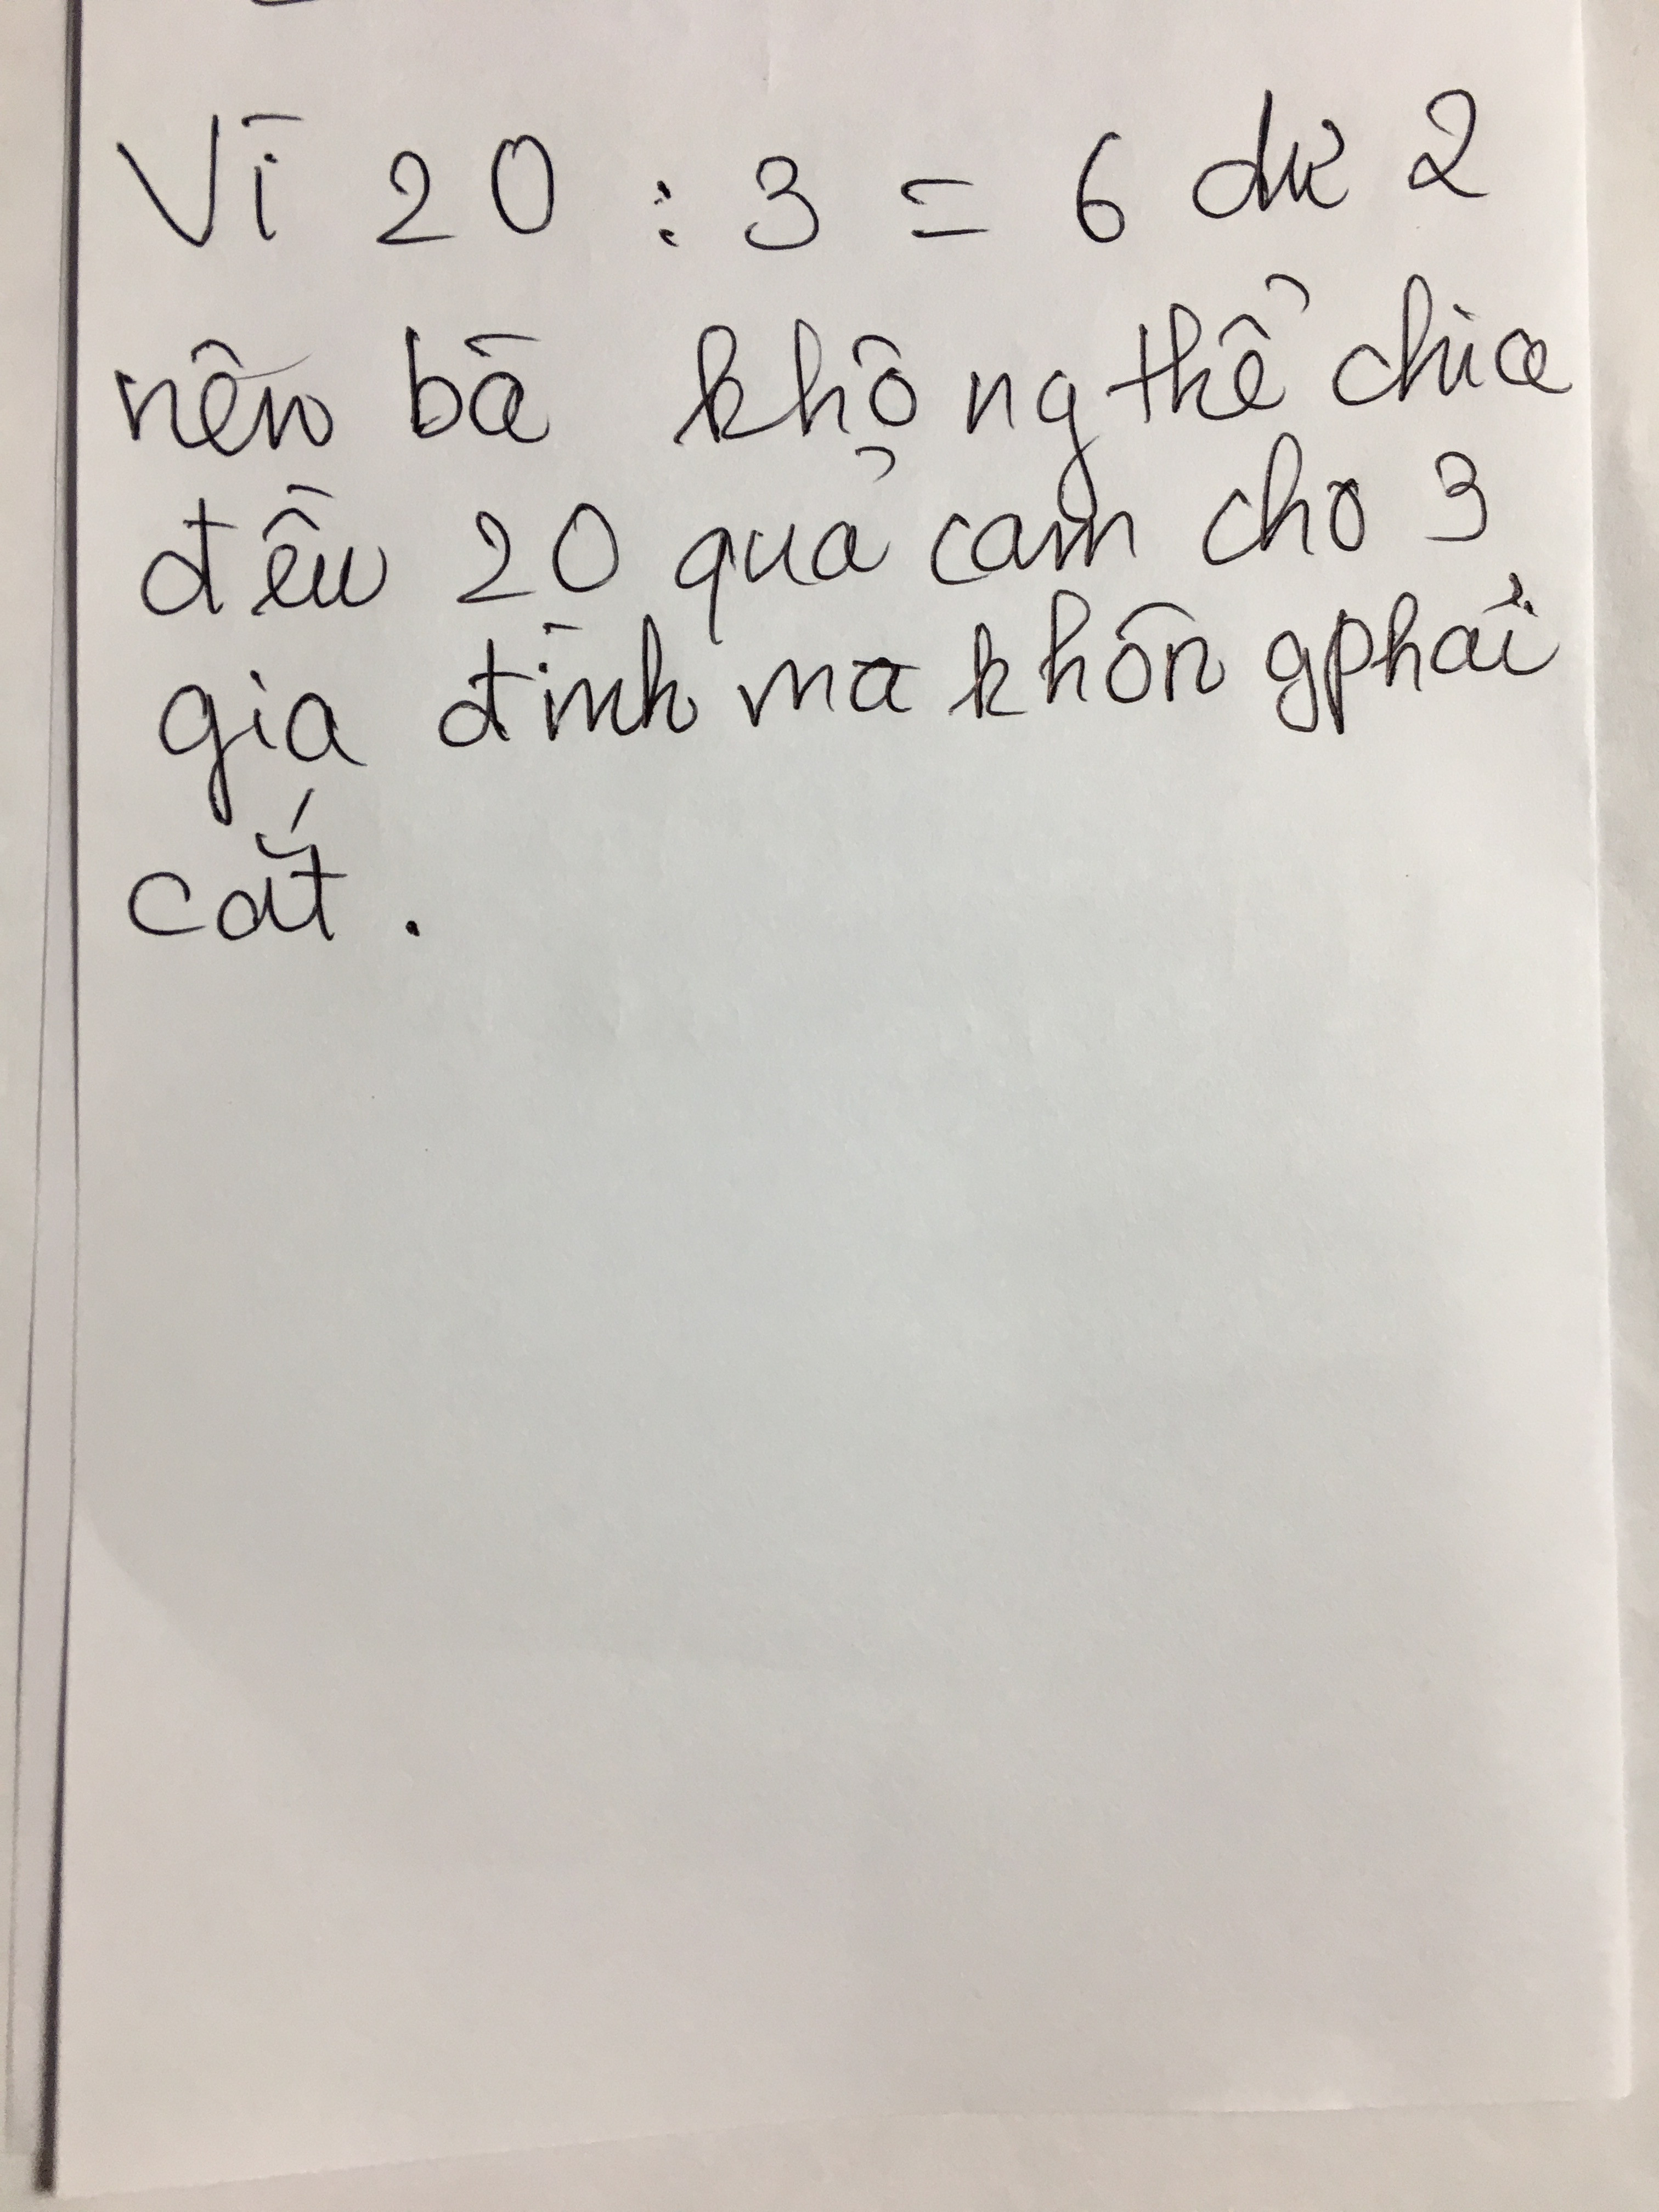 Vì 20 : 3 = 6 dư 2
nên bà không thể chia
đều 20 quả cam cho 3
gia đình mà khôn gphải
cắt .